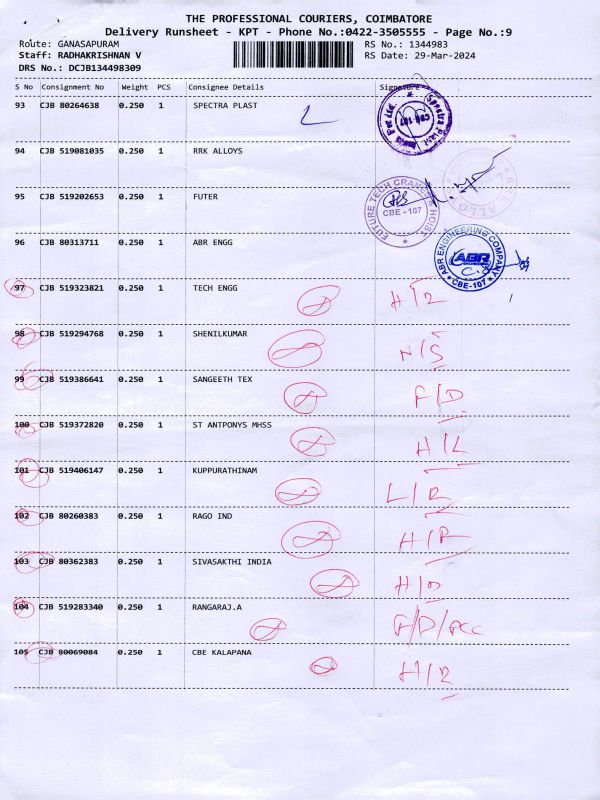 THE PROFESSIONAL COURIERS, COIMBATORE
Delivery Runsheet - KPT - Phone No.:0422-3505555 - Page No.:9
Route: GANASAPURAM RS No.: 1344983
Staff: RADHAKRISHNAN V RS Date: 29-Mar-2024
DRS No.: DCJB134498309
S No Consignment No Weight PCS Consignee Details Signature
93 CJB 80264638 0.250 1 SPECTRA PLAST
Spectra Plast CBE-107
94 CJB 519081035 0.250 1 RRK ALLOYS
95 CJB 519202653 0.250 1 FUTER
FUTURE TECH CRANES HOIST CBE - 107
96 CJB 80313711 0.250 1 ABR ENGG
ABR ENGINEERING COMPANY ABR CBE-107
97 CJB 519323821 0.250 1 TECH ENGG
98 CJB 519294768 0.250 1 SHENILKUMAR N/S
99 CJB 519386641 0.250 1 SANGEETH TEX F/D
100 CJB 519372820 0.250 1 ST ANTPONYS MHSS H/L
101 CJB 519406147 0.250 1 KUPPURATHINAM L/R
102 CJB 80260383 0.250 1 RAGO IND H/R
103 CJB 80362383 0.250 1 SIVASAKTHI INDIA H/D
104 CJB 519283340 0.250 1 RANGARAJ.A
105 CJB 80069084 0.250 1 CBE KALAPANA